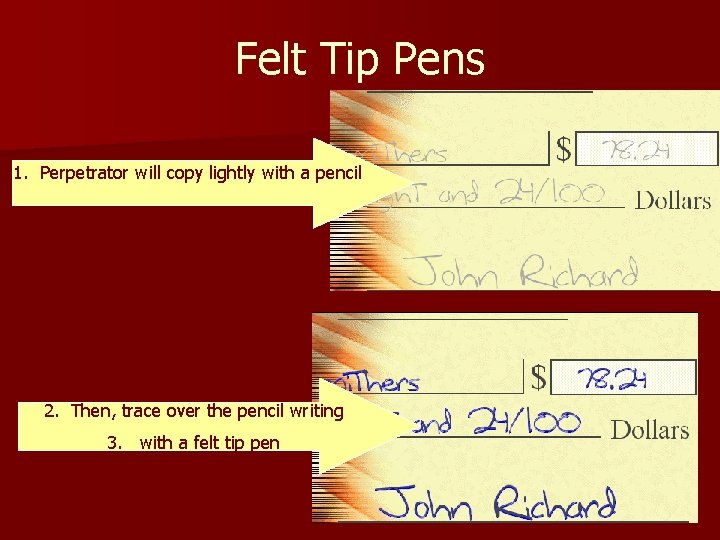 Felt Tip Pens
Thers
$ 78.24
1. Perpetrator will copy lightly with a pencil
and 24/100 Dollars
John Richard
Thers
$ 78.24
2. Then, trace over the pencil writing
and 24/100 Dollars
3. with a felt tip pen
John Richard